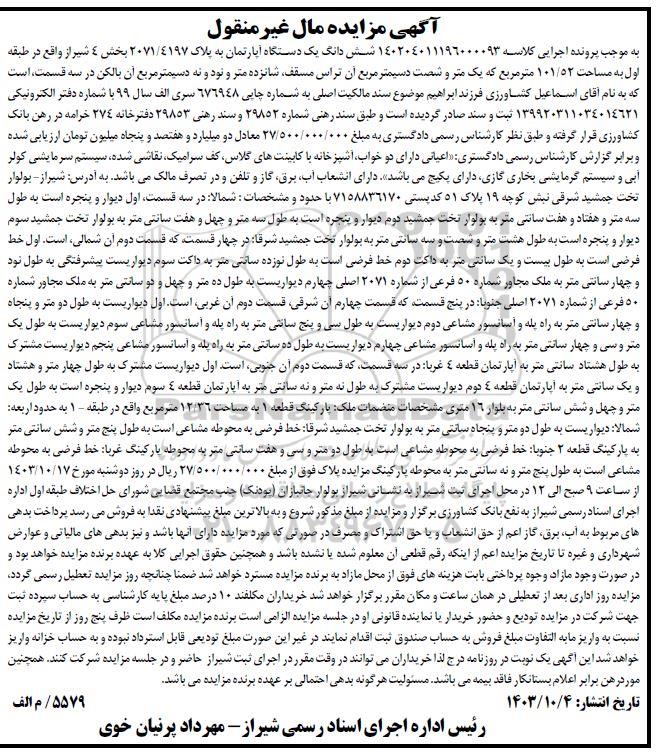 آگهی مزایده مال غیرمنقول
به موجب پرونده اجرایی کلاسه ۱۴۰۲۰۴۰۱۱۱۹۶۰۰۰۰۹۳ شش دانگ یک دستگاه آپارتمان به پلاک ۲۰۷۱/۴۱۹۷ بخش ۴ شیراز واقع در طبقه
اول به مساحت ۱۰۱/۵۲ مترمربع که یک متر و شصت دسیمترمربع آن تراس مسقف، شانزده متر و نود و نه دسیمترمربع آن بالکن در سه قسمت، است
که به نام آقای اسماعیل کشاورزی فرزند ابراهیم موضوع سند مالکیت اصلی به شماره چاپی ۶۷۶۹۴۸ سری الف سال ۹۹ با شماره دفتر الکترونیکی
۱۳۹۹۲۰۳۱۱۰۳۴۰۱۴۶۲۱ ثبت و سند صادر گردیده است و طبق سند رهنی شماره ۲۹۸۵۲ و سند رهنی ۲۹۸۵۳ دفترخانه ۲۷۴ خرامه در رهن بانک
کشاورزی قرار گرفته و طبق نظر کارشناس رسمی دادگستری به مبلغ ۲۷/۵۰۰/۰۰۰/۰۰۰ معادل دو میلیارد و هفتصد و پنجاه میلیون تومان ارزیابی شده
و برابر گزارش کارشناس رسمی دادگستری: «اعیانی دارای دو خواب، آشپزخانه با کابینت های گلاس، کف سرامیک، نقاشی شده، سیستم سرمایشی کولر
آبی و سیستم گرمایشی بخاری گازی، دارای پکیج می باشد». دارای انشعاب آب، برق، گاز و تلفن و در تصرف مالک می باشد. به آدرس: شیراز- بولوار
تخت جمشید شرقی نبش کوچه ۱۹ پلاک ۵۱ کدپستی ۷۱۵۸۸۳۶۱۷۰ با حدود و مشخصات : شمالا: در سه قسمت، اول دیوار و پنجره است به طول
سه متر و هفتاد و هفت سانتی متر به بولوار تخت جمشید دوم دیوار و پنجره است به طول سه متر و چهل و هفت سانتی متر به بولوار تخت جمشید سوم
دیوار و پنجره است به طول هشت متر و شصت و سه سانتی متر به بولوار تخت جمشید شرقا: در چهار قسمت، که قسمت دوم آن شمالی، است. اول خط
فرضی است به طول بیست و یک سانتی متر به داکت دوم خط فرضی است به طول نوزده سانتی متر به داکت سوم دیواریست پیشرفتگی به طول نود
و چهار سانتی متر به ملک مجاور شماره ۵۰ فرعی از شماره ۲۰۷۱ اصلی چهارم دیواریست به طول ده متر و چهل و دو سانتی متر به ملک مجاور شماره
۵۰ فرعی از شماره ۲۰۷۱ اصلی جنوبا: در پنج قسمت، که قسمت چهارم آن شرقی، قسمت دوم آن غربی، است. اول دیواریست به طول دو متر و پنجاه
و چهار سانتی متر به راه پله و آسانسور مشاعی دوم دیواریست به طول سی و پنج سانتی متر به راه پله و آسانسور مشاعی سوم دیواریست به طول یک
متر و سی و چهار سانتی متر به راه پله و آسانسور مشاعی چهارم دیواریست به طول ده سانتی متر به راه پله و آسانسور مشاعی پنجم دیواریست مشترک
به طول هشتاد سانتی متر به آپارتمان قطعه ۴ غربا: در سه قسمت، که قسمت دوم آن جنوبی، است. اول دیواریست مشترک به طول چهار متر و هشتاد
و یک سانتی متر به آپارتمان قطعه ۴ دوم دیواریست مشترک به طول نه متر و نه سانتی متر به آپارتمان قطعه ۴ سوم دیوار و پنجره است به طول یک
متر و چهل و شش سانتی متر به بلوار ۱۶ متری مشخصات منضمات ملک: پارکینگ قطعه ۱ به مساحت ۱۲/۳۶ مترمربع واقع در طبقه - ۱ به حدود اربعه:
شمالا: دیواریست به طول دو متر و پنجاه سانتی متر به بولوار تخت جمشید شرقا: خط فرضی به محوطه مشاعی است به طول پنج متر و شش سانتی متر
به پارکینگ قطعه ۲ جنوبا: خط فرضی به محوطه مشاعی است به طول دو متر و سی و هفت سانتی متر به محوطه پارکینگ غربا: خط فرضی به محوطه
مشاعی است به طول پنج متر و نه سانتی متر به محوطه پارکینگ مزایده پلاک فوق از مبلغ ۲۷/۵۰۰/۰۰۰/۰۰۰ ریال در روز دوشنبه مورخ ۱۴۰۳/۱۰/۱۷
از ساعت ۹ صبح الی ۱۲ در محل اجرای ثبت شیراز به نشانی شیراز بولوار جانبازان (بودنک) جنب مجتمع قضایی شورای حل اختلاف طبقه اول اداره
اجرای اسناد رسمی شیراز به نفع بانک کشاورزی برگزار و مزایده از مبلغ مذکور شروع و به بالاترین مبلغ پیشنهادی نقدا به فروش می رسد پرداخت بدهی
های مربوط به آب، برق، گاز اعم از حق انشعاب و یا حق اشتراک و مصرف در صورتی که مورد مزایده دارای آنها باشد و نیز بدهی های مالیاتی و عوارض
شهرداری و غیره تا تاریخ مزایده اعم از اینکه رقم قطعی آن معلوم شده یا نشده باشد و همچنین حقوق اجرایی کلا به عهده برنده مزایده خواهد بود و
در صورت وجود مازاد، وجوه پرداختی بابت هزینه های فوق از محل مازاد به برنده مزایده مسترد خواهد شد ضمنا چنانچه روز مزایده تعطیل رسمی گردد،
مزایده روز اداری بعد از تعطیلی در همان ساعت و مکان مقرر برگزار خواهد شد خریداران مکلفند ۱۰ درصد مبلغ پایه کارشناسی به حساب سپرده ثبت
جهت شرکت در مزایده تودیع و حضور خریدار یا نماینده قانونی او در جلسه مزایده الزامی است برنده مزایده مکلف است ظرف پنج روز از تاریخ مزایده
نسبت به واریز مابه التفاوت مبلغ فروش به حساب صندوق ثبت اقدام نمایند در غیر این صورت مبلغ تودیعی قابل استرداد نبوده و به حساب خزانه واریز
خواهد شد این آگهی یک نوبت در روزنامه درج لذا خریداران می توانند در وقت مقرر در اجرای ثبت شیراز حاضر و در جلسه مزایده شرکت کنند. همچنین
مورد رهن برابر اعلام بستانکار فاقد بیمه می باشد. مسئولیت هرگونه بدهی احتمالی بر عهده برنده مزایده می باشد.
تاریخ انتشار: ۱۴۰۳/۱۰/۴ ۵۵۷۹/ م الف
رئیس اداره اجرای اسناد رسمی شیراز – مهرداد پرنیان خوی